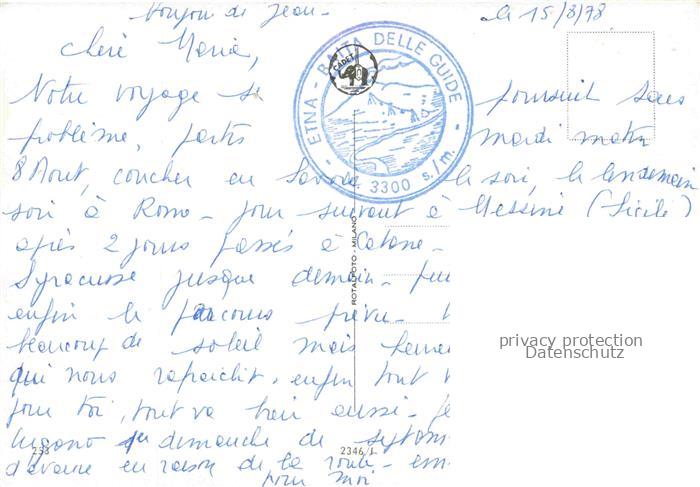 Bonjour de Jean - le 15/8/78
Chère Maria,
Notre voyage se poursuit sans
problème, partis mardi matin
8 Aout, coucher en Savoie le soir, le lendemain
soir à Rome - jour suivant à Messine (Sicile)
après 2 jours passés à Catane -
Syracusse jusque demain -
enfin le parcours prévu -
beaucoup de soleil mais
qui nous rafraichit. enfin tout
pour toi, tout va bien aussi -
Lugano dimanche de
d'avance en raison de la route -
pour moi
ETNA - BAITA DELLE GUIDE - 3300 s/m.
CADET
ROTALFOTO - MILANO
253
2346/L
privacy protection
Datenschutz